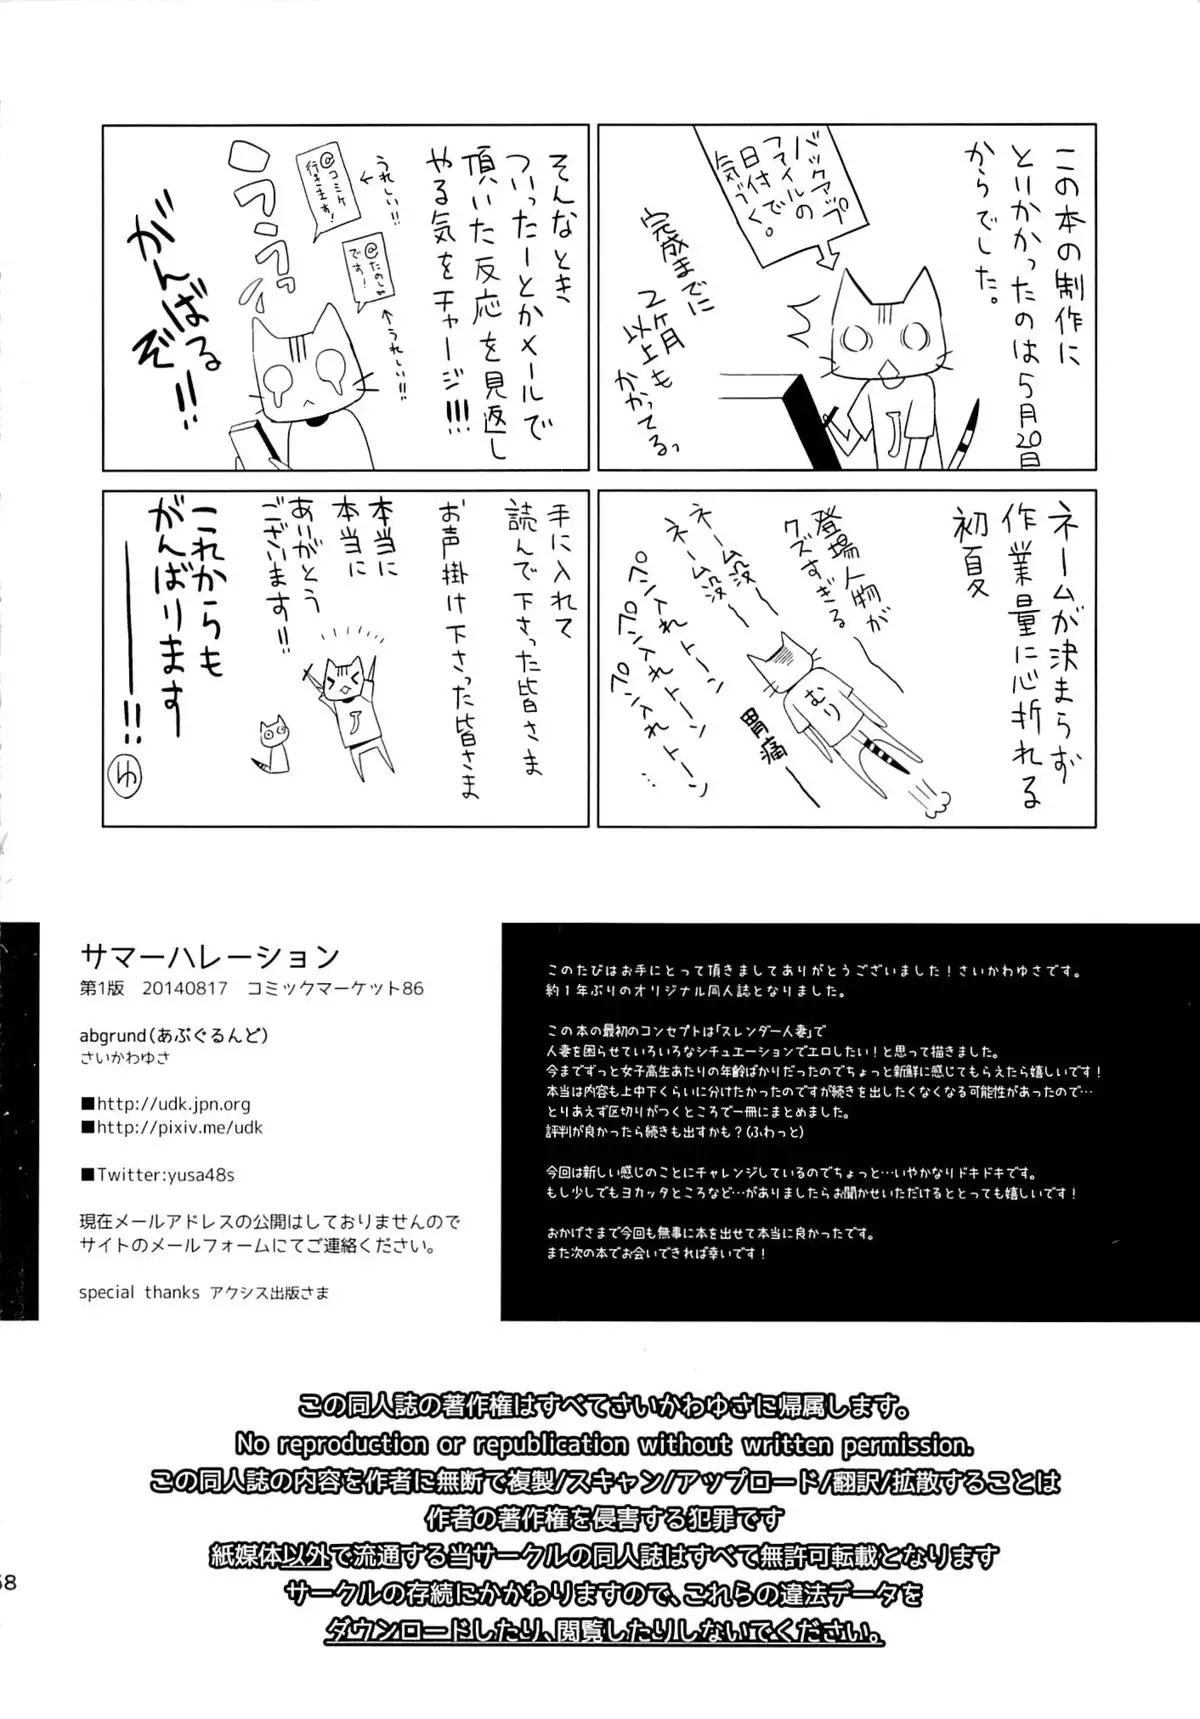 この本の制作に
とりかかったのは5月20日
からでした。
バックアップ
ファイルの
日付で
気づく。
完成までに
2ヶ月
以上も
かかってる。
J
ネームが決まらず
作業量に心折れる
初夏
登場人物が
クズすぎる
ネーム没〜
ネーム没〜
ペン入れトーン
ペン入れトーン
むり
胃痛〜
そんなとき
ついったーとかメールで
頂いた反応を見返し
やる気をチャージ!!!
うれしい!!
@コミケ
行きます!
@たのしみ
です!
うれしい!!
がんばる
ぞ!!
手に入れて
読んで下さった皆さま
お声掛け下さった皆さま
本当に
本当に
ありがとう
ございます!!
J
これからも
がんばります
――!!
ゆ
サマーハレーション
第1版 20140817 コミックマーケット86
abgrund(あぷぐるんど)
さいかわゆさ
■http://udk.jpn.org
■http://pixiv.me/udk
■Twitter:yusa48s
現在メールアドレスの公開はしておりませんので
サイトのメールフォームにてご連絡ください。
special thanks アクシス出版さま
このたびはお手にとって頂きましてありがとうございました!さいかわゆさです。
約1年ぶりのオリジナル同人誌となりました。
この本の最初のコンセプトは「スレンダー人妻」で
人妻を困らせていろいろなシチュエーションでエロしたい!と思って描きました。
今までずっと女子高生あたりの年齢ばかりだったのでちょっと新鮮に感じてもらえたら嬉しいです!
本当は内容も上中下くらいに分けたかったのですが続きを出したくなくなる可能性があったので…
とりあえず区切りがつくところで一冊にまとめました。
評判が良かったら続きも出すかも?(ふわっと)
今回は新しい感じのことにチャレンジしているのでちょっと…いやかなりドキドキです。
もし少しでもヨカッタところなど…がありましたらお聞かせいただけるととっても嬉しいです!
おかげさまで今回も無事に本を出せて本当に良かったです。
また次の本でお会いできれば幸いです!
この同人誌の著作権はすべてさいかわゆさに帰属します。
No reproduction or republication without written permission.
この同人誌の内容を作者に無断で複製/スキャン/アップロード/翻訳/拡散することは
作者の著作権を侵害する犯罪です
紙媒体以外で流通する当サークルの同人誌はすべて無許可転載となります
サークルの存続にかかわりますので、これらの違法データを
ダウンロードしたり、閲覧したりしないでください。
68